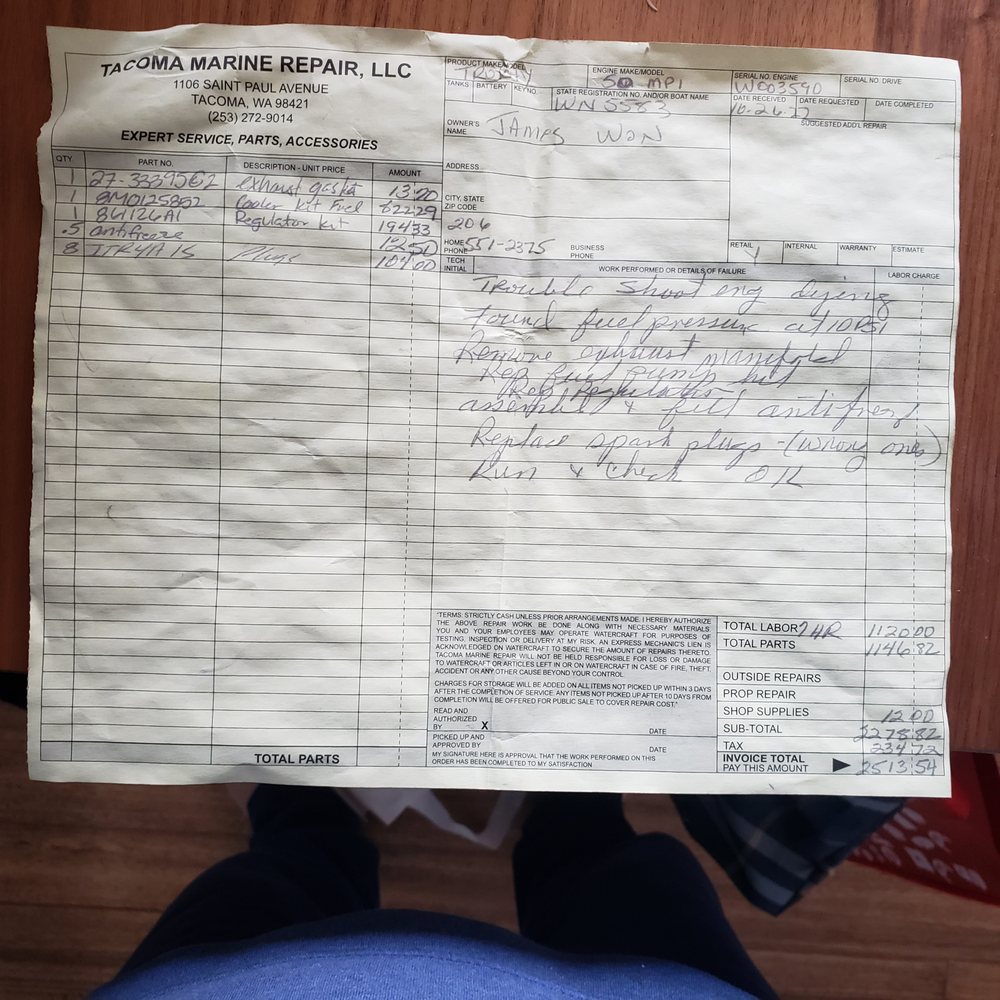 TACOMA MARINE REPAIR, LLC
1106 SAINT PAUL AVENUE
TACOMA, WA 98421
(253) 272-9014
EXPERT SERVICE, PARTS, ACCESSORIES
PRODUCT MAKE/MODEL
ENGINE MAKE/MODEL
50 MPI
SERIAL NO. ENGINE
W003590
SERIAL NO. DRIVE
TANKS BATTERY KEY NO.
STATE REGISTRATION NO. AND/OR BOAT NAME
WN 5583
DATE RECEIVED DATE REQUESTED DATE COMPLETED
10-26-22
OWNER'S NAME JAMES WON
SUGGESTED ADD'L REPAIR
ADDRESS
CITY, STATE
ZIP CODE
206
HOME PHONE 551-2375 BUSINESS PHONE
RETAIL INTERNAL WARRANTY ESTIMATE
TECH INITIAL
QTY PART NO. DESCRIPTION - UNIT PRICE AMOUNT
1 27-33395C2 exhaust gasket 13.20
1 8M0125852 Cooler Kit Fuel 822.79
1 861126A1 Regulator Kit 194.33
.5 antifreeze 12.50
8 Plugs 104.00
TOTAL PARTS
WORK PERFORMED OR DETAILS OF FAILURE LABOR CHARGE
Trouble Shoot eng dying
Found fuel pressure at 10 PSI
Remove exhaust manifold
Rep fuel pump kit
Rep Regulator
assemble & fill antifreeze
Replace spark plugs - (wrong ones)
Run & Check OK
"TERMS: STRICTLY CASH UNLESS PRIOR ARRANGEMENTS MADE. I HEREBY AUTHORIZE
THE ABOVE REPAIR WORK BE DONE ALONG WITH NECESSARY MATERIALS.
YOU AND YOUR EMPLOYEES MAY OPERATE WATERCRAFT FOR PURPOSES OF
TESTING, INSPECTION OR DELIVERY AT MY RISK. AN EXPRESS MECHANIC'S LIEN IS
ACKNOWLEDGED ON WATERCRAFT TO SECURE THE AMOUNT OF REPAIRS THERETO.
TACOMA MARINE REPAIR WILL NOT BE HELD RESPONSIBLE FOR LOSS OR DAMAGE
TO WATERCRAFT OR ARTICLES LEFT IN OR ON WATERCRAFT IN CASE OF FIRE, THEFT,
ACCIDENT OR ANY OTHER CAUSE BEYOND YOUR CONTROL.
CHARGES FOR STORAGE WILL BE ADDED ON ALL ITEMS NOT PICKED UP WITHIN 3 DAYS
AFTER THE COMPLETION OF SERVICE. ANY ITEMS NOT PICKED UP AFTER 10 DAYS FROM
COMPLETION WILL BE OFFERED FOR PUBLIC SALE TO COVER REPAIR COST."
READ AND
AUTHORIZED
BY X DATE
PICKED UP AND
APPROVED BY DATE
MY SIGNATURE HERE IS APPROVAL THAT THE WORK PERFORMED ON THIS
ORDER HAS BEEN COMPLETED TO MY SATISFACTION
TOTAL LABOR 7 HR 1120.00
TOTAL PARTS 1146.82
OUTSIDE REPAIRS
PROP REPAIR
SHOP SUPPLIES 12.00
SUB-TOTAL 2278.82
TAX 234.72
INVOICE TOTAL
PAY THIS AMOUNT 2513.54